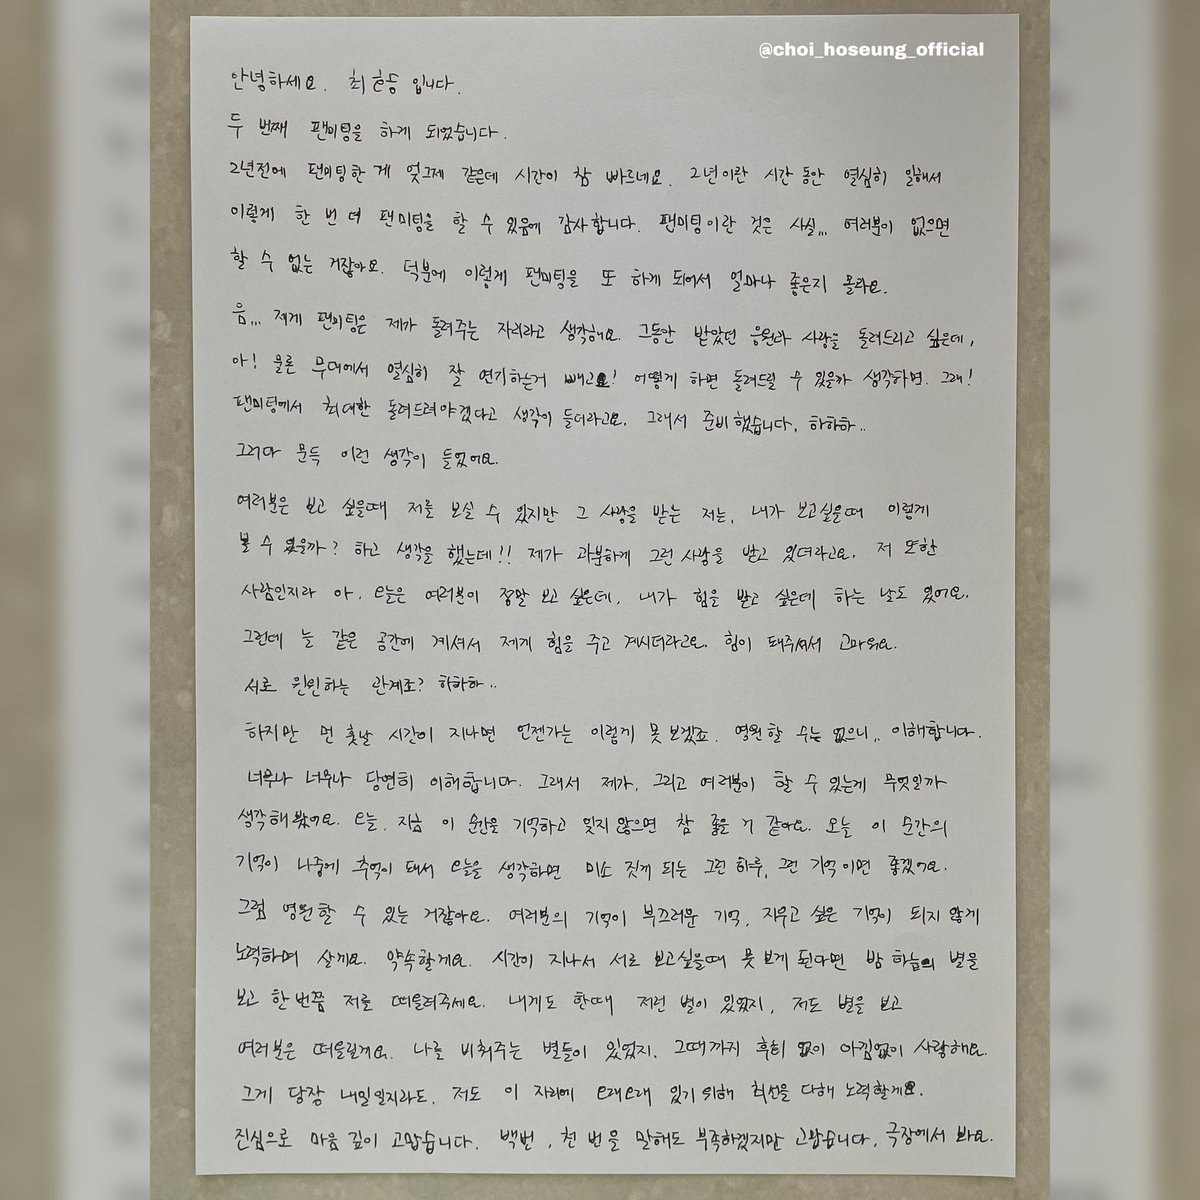 @choi_hoseung_official
안녕하세요. 최호승 입니다.
두 번째 팬미팅을 하게 되었습니다.
2년전에 팬미팅한 게 엊그제 같은데 시간이 참 빠르네요. 2년이란 시간 동안 열심히 일해서
이렇게 한 번 더 팬미팅을 할 수 있음에 감사합니다. 팬미팅이란 것은 사실,,, 여러분이 없으면
할 수 없는 거잖아요. 덕분에 이렇게 팬미팅을 또 하게 되어서 얼마나 좋은지 몰라요.
음,,, 제게 팬미팅은 제가 돌려주는 자리라고 생각해요. 그동안 받았던 응원과 사랑을 돌려드리고 싶은데,
아! 물론 무대에서 열심히 잘 연기하는거 빼고요! 어떻게 하면 돌려드릴 수 있을까 생각하면. 그래!
팬미팅에서 최대한 돌려드려야겠다고 생각이 들더라고요. 그래서 준비했습니다. 하하하..
그러다 문득 이런 생각이 들었어요.
여러분은 보고 싶을때 저를 보실 수 있지만 그 사랑을 받는 저는, 내가 보고싶을때 이렇게
볼 수 있을까? 하고 생각을 했는데!! 제가 과분하게 그런 사랑을 받고 있더라고요. 저 또한
사람인지라 아, 오늘은 여러분이 정말 보고 싶은데, 내가 힘을 받고 싶은데 하는 날도 있어요.
그런데 늘 같은 공간에 계셔서 제게 힘을 주고 계시더라고요. 힘이 돼주셔서 고마워요.
서로 윈윈하는 관계죠? 하하하..
하지만 먼 훗날 시간이 지나면 언젠가는 이렇게 못 보겠죠. 영원할 수는 없으니,, 이해합니다.
너무나 너무나 당연히 이해합니다. 그래서 제가, 그리고 여러분이 할 수 있는게 무엇일까
생각해봤어요. 오늘, 지금 이 순간을 기억하고 잊지 않으면 참 좋을 거 같아요. 오늘 이 순간의
기억이 나중에 추억이 돼서 오늘을 생각하면 미소 짓게 되는 그런 하루, 그런 기억이면 좋겠어요.
그럼 영원할 수 있는 거잖아요. 여러분의 기억이 부끄러운 기억, 지우고 싶은 기억이 되지 않게
노력하며 살게요. 약속할게요. 시간이 지나서 서로 보고싶을때 못 보게 된다면 밤 하늘의 별을
보고 한번쯤 저를 떠올려주세요. 내게도 한때 저런 별이 있었지, 저도 별을 보고
여러분을 떠올릴게요. 나를 비춰주는 별들이 있었지. 그때까지 후회 없이 아낌없이 사랑해요.
그게 당장 내일일지라도, 저도 이 자리에 오래오래 있기 위해 최선을 다해 노력할게요.
진심으로 마음 깊이 고맙습니다. 백번, 천 번을 말해도 부족하겠지만 고맙습니다. 극장에서 봐요.